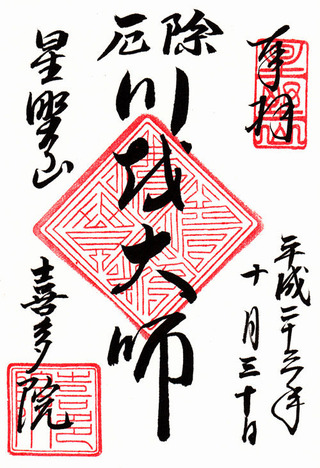 奉拝
平成二十六年
十月三十日
厄除
川越大師
星野山
喜多院